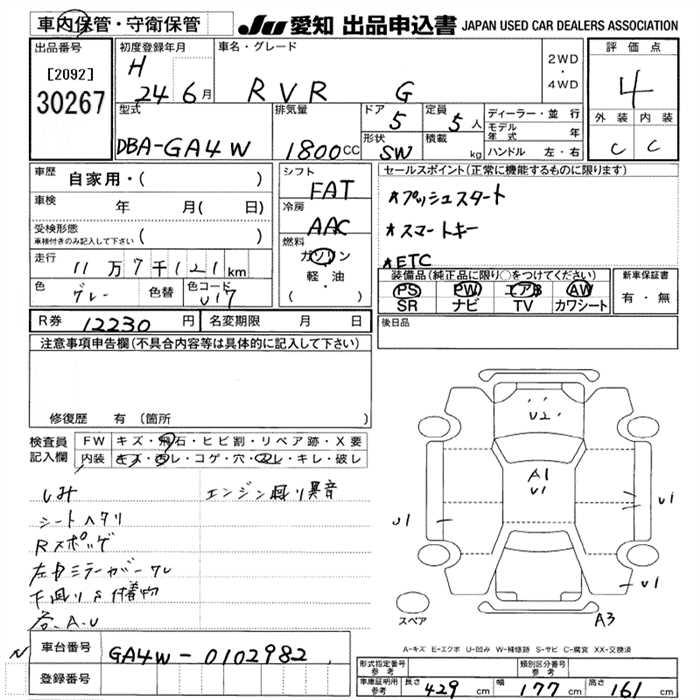 車内保管・守衛保管
JU 愛知 出品申込書 JAPAN USED CAR DEALERS ASSOCIATION
出品番号
[2092]
30267
初度登録年月
H
24 6月
車名・グレード
RVR G
2WD
・
4WD
評価点
4
外装 内装
C C
型式
DBA-GA4W
排気量
1800CC
ドア
5
定員
5人
形状
SW
積載
kg
ディーラー・並行
モデル年式 年
ハンドル 左・右
車歴
自家用・( )
車検 年 月( 日)
受検形態
車検付きのみ記入して下さい ( )
走行 11万7千121km
色 グレー 色替 色コード U17
シフト
FAT
冷房
AAC
燃料
ガソリン
軽・油
( ・ )
セールスポイント(正常に機能するものに限ります)
★プッシュスタート
★スマートキー
★ETC
装備品(純正品に限り〇をつけてください)
PS PW エアB AW
SR ナビ TV カワシート
新車保証書
有・無
R券 12230円 名変期限 月 日
後日品
注意事項申告欄(不具合内容等は具体的に記入して下さい)
修復歴 有(箇所 )
検査員
記入欄
FW キズ・飛石・ヒビ割・リペア跡・X要
内装 キズ・汚レ・コゲ・穴・スレ・キレ・破レ
しみ エンジン回り異音
シートヘタリ
Rスポッゲ
左ドミラーガバーワレ
下回りS付着物
各、A.U
U2
A1
U1
U1
U1
U1
A3
スペア
A-キズ E-エクボ U-凹み W-補修跡 S-サビ C-腐食 XX-交換済
N
車台番号 GA4W-0102982
登録番号
形式指定番号
参考
類別区分番号
参考
車庫証明用
参考
長さ 429cm 幅 177cm 高さ 161cm